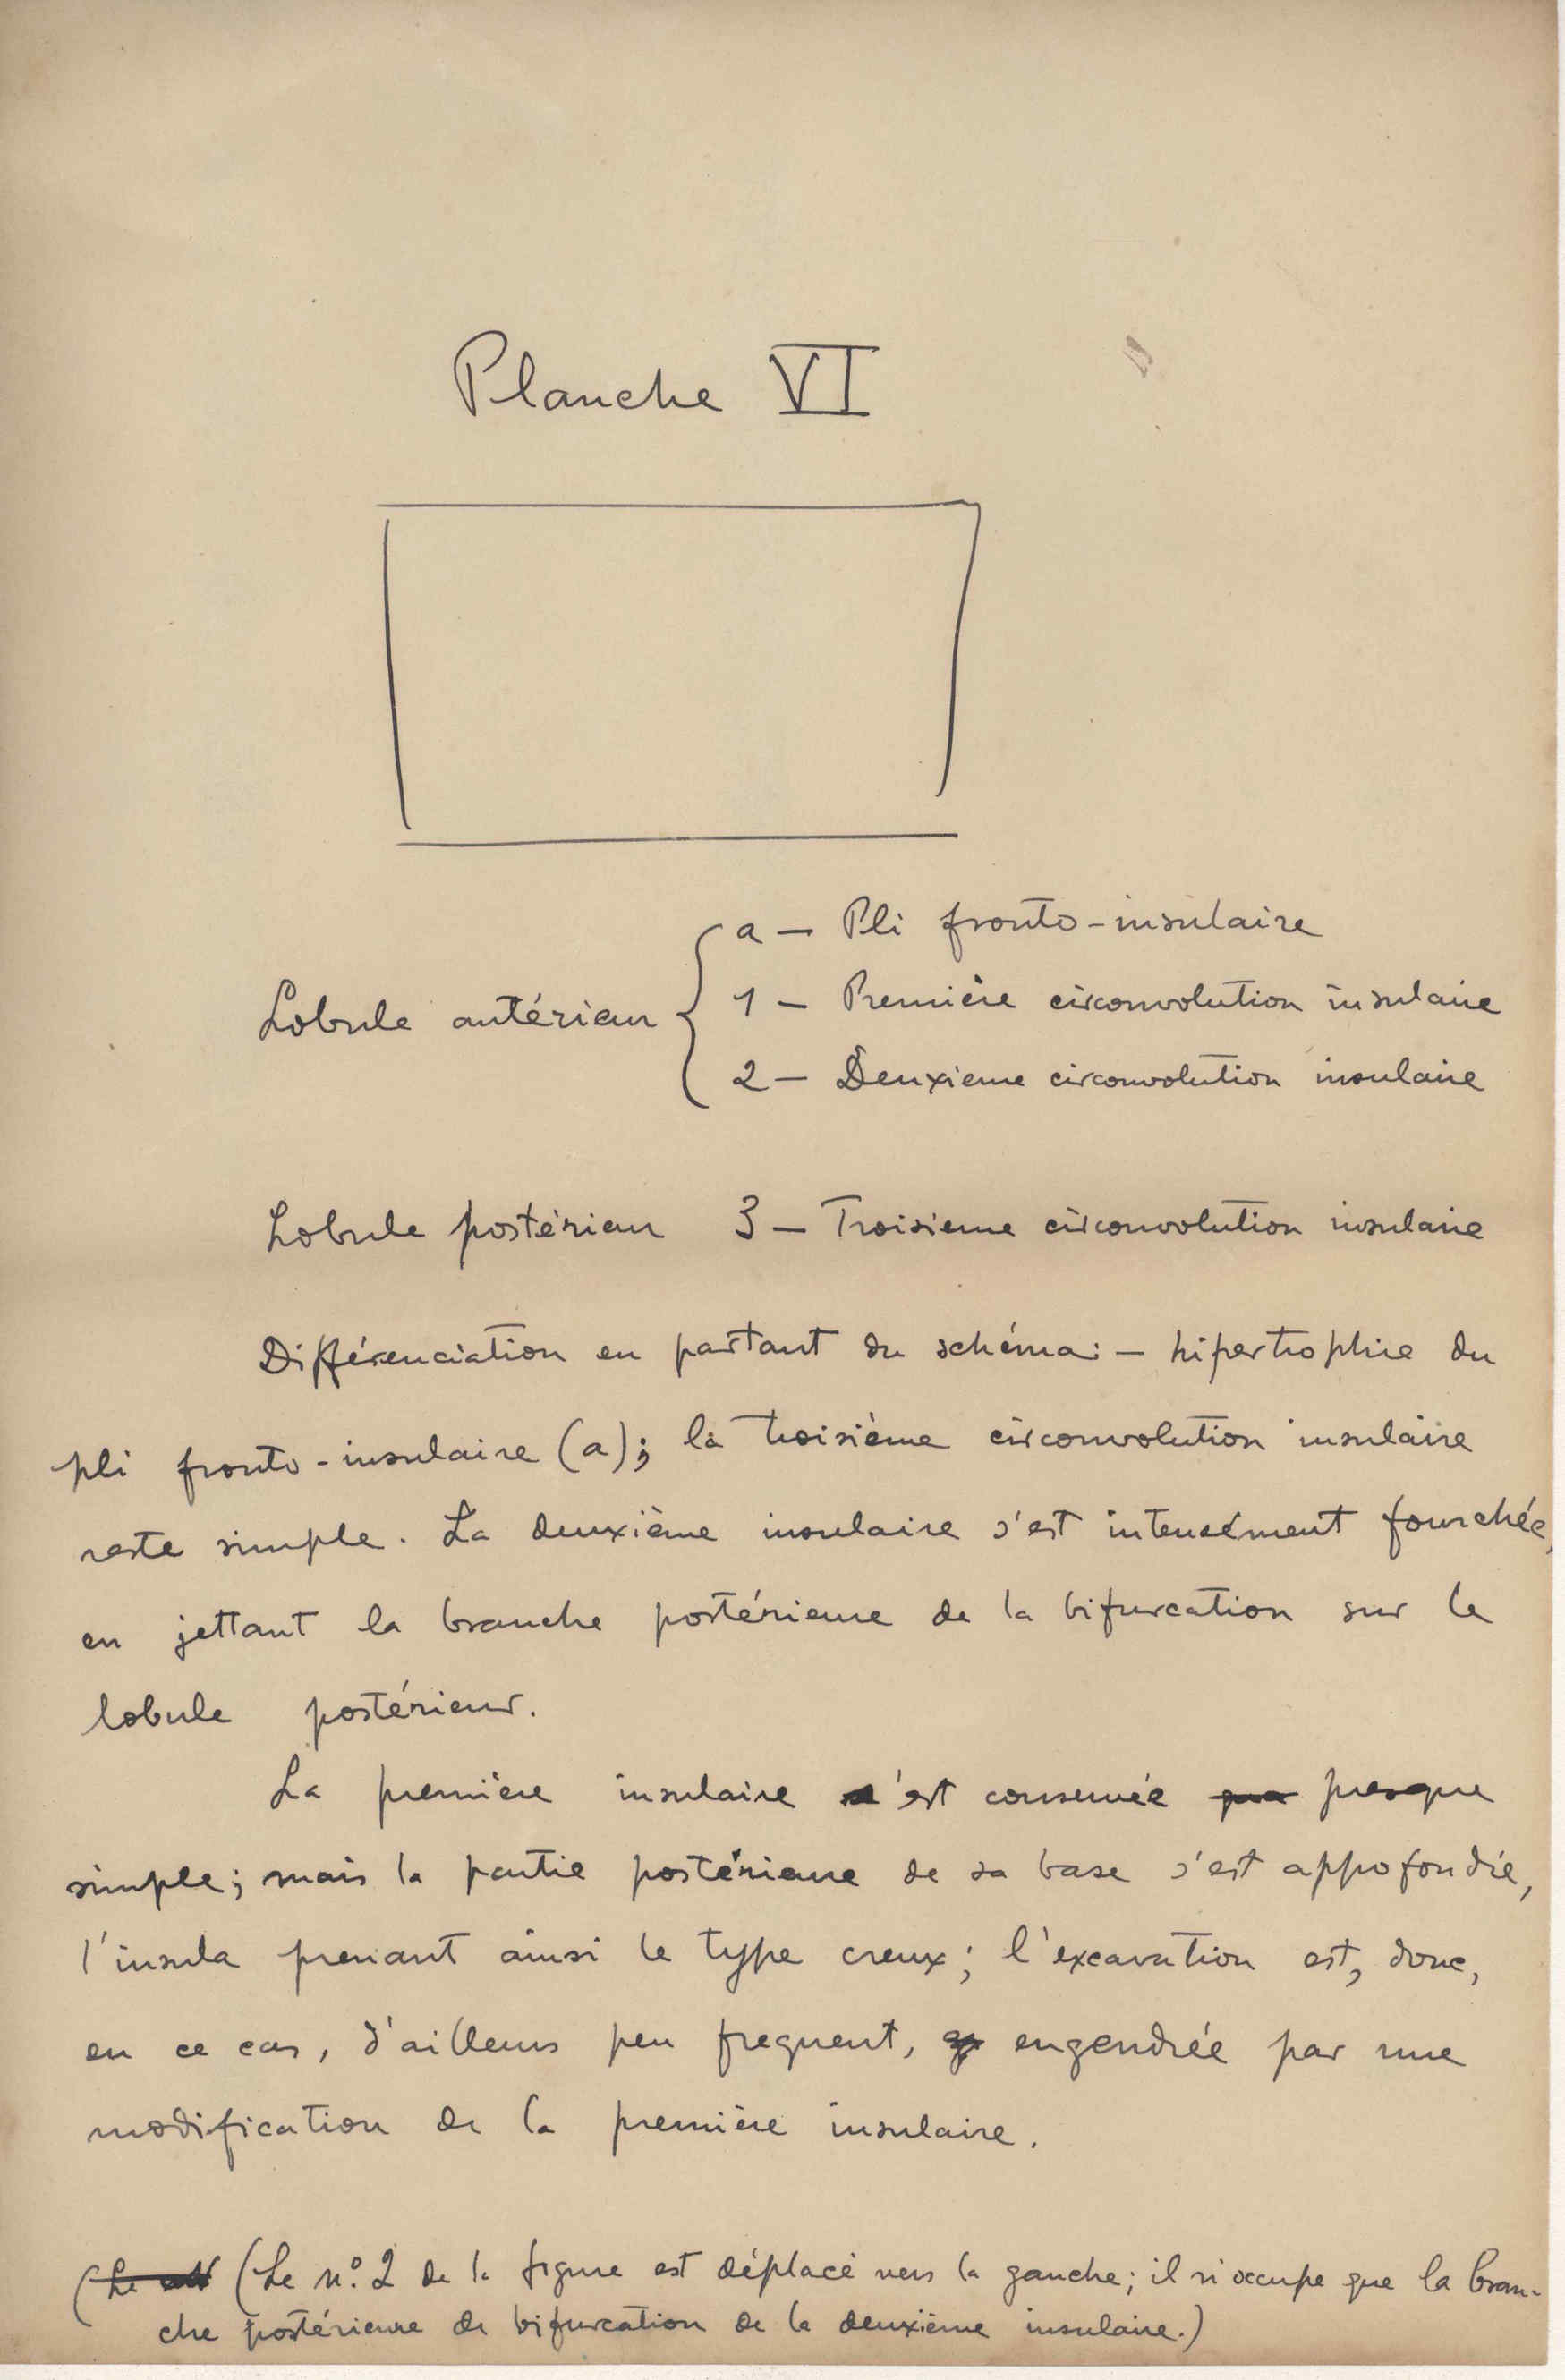 Planche VI
Lobule antérieur
a — Pli fronto-insulaire
1 — Première circonvolution insulaire
2 — Deuxieme circonvolution insulaire
Lobule postérieur 3 — Troisieme circonvolution insulaire
Différenciation en partant du schéma: — hipertrophie du
pli fronto-insulaire (a); la troisième circonvolution insulaire
reste simple. La deuxième insulaire s'est intensément fourchée,
en jettant la branche postérieure de la bifurcation sur le
lobule postérieur.
La première insulaire s'est conservée presque
simple; mais la partie postérieure de sa base s'est appofondie,
l'insula prenant ainsi le type creux; l'excavation est, donc,
en ce cas, d'ailleurs peu frequent, engendrée par une
modification de la première insulaire.
(Le (Le n.º 2 de la figure est déplacé vers la gauche; il n'occupe que la bran-
che postérieure de bifurcation de la deuxième insulaire.)